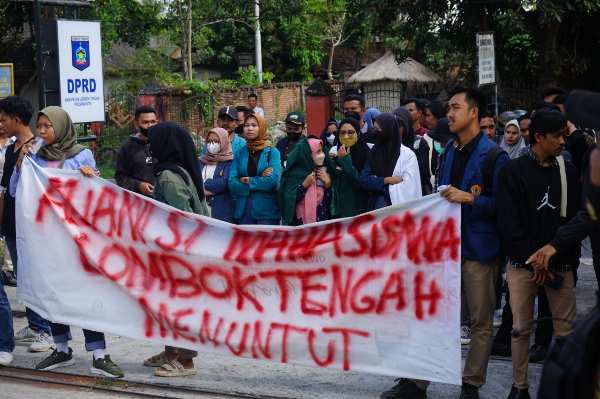 DPRD
ALIANSI MAHASISWA
LOMBOK TENGAH
MENUNTUT